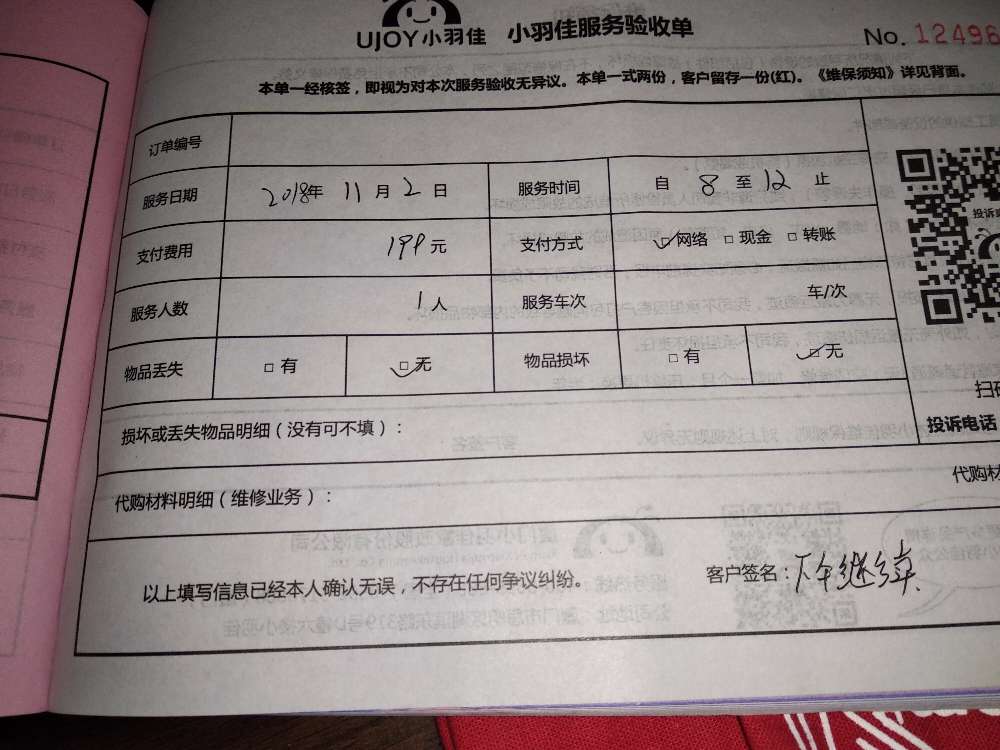 UJOY小羽佳 小羽佳服务验收单
No. 12496
本单一经核签，即视为对本次服务验收无异议。本单一式两份，客户留存一份(红)。《维保须知》详见背面。
订单编号
服务日期 2018年 11月2日 服务时间 自 8 至 12 止
支付费用 199元 支付方式 网络 现金 转账
服务人数 1人 服务车次 车/次
物品丢失 有 无 物品损坏 有 无
扫码
投诉电话
损坏或丢失物品明细（没有可不填）：
代购材料明细（维修业务）： 代购材
以上填写信息已经本人确认无误，不存在任何争议纠纷。 客户签名：下午继续